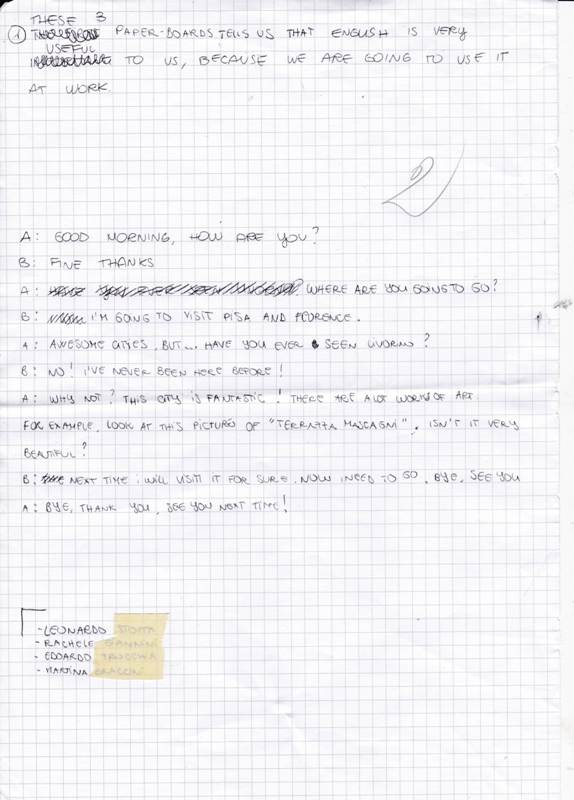 THESE 3
① PAPER-BOARDS TELLS US THAT ENGLISH IS VERY
USEFUL
TO US, BECAUSE WE ARE GOING TO USE IT
AT WORK.
2
A: GOOD MORNING, HOW ARE YOU?
B: FINE THANKS
A: WHERE ARE YOU GOING TO GO?
B: I'M GOING TO VISIT PISA AND FLORENCE.
A: AWESOME CITIES, BUT... HAVE YOU EVER SEEN LIVORNO?
B: NO! I'VE NEVER BEEN HERE BEFORE!
A: WHY NOT? THIS CITY IS FANTASTIC! THERE ARE A LOT WORKS OF ART.
FOR EXAMPLE, LOOK AT THIS PICTURES OF "TERRAZZA MASCAGNI". ISN'T IT VERY
BEAUTIFUL?
B: NEXT TIME I WILL VISIT IT FOR SURE. NOW I NEED TO GO. BYE, SEE YOU
A: BYE, THANK YOU, SEE YOU NEXT TIME!
- LEONARDO
- RACHELE
- EDOARDO
- MARTINA